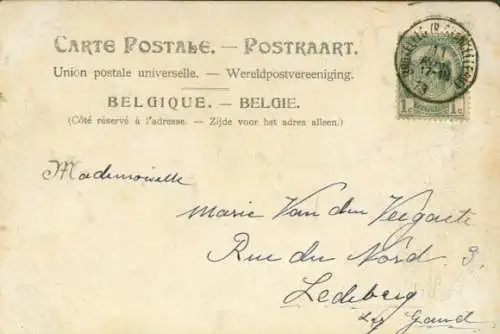 CARTE POSTALE. — POSTKAART.
Union postale universelle. — Wereldpostvereeniging.
BELGIQUE. — BELGIE.
(Côté réservé à l'adresse. — Zijde voor het adres alleen.)
1c 1c
17-18
Mademoiselle
Marie Van den
Rue du Nord 9.
Ledeberg
Gand